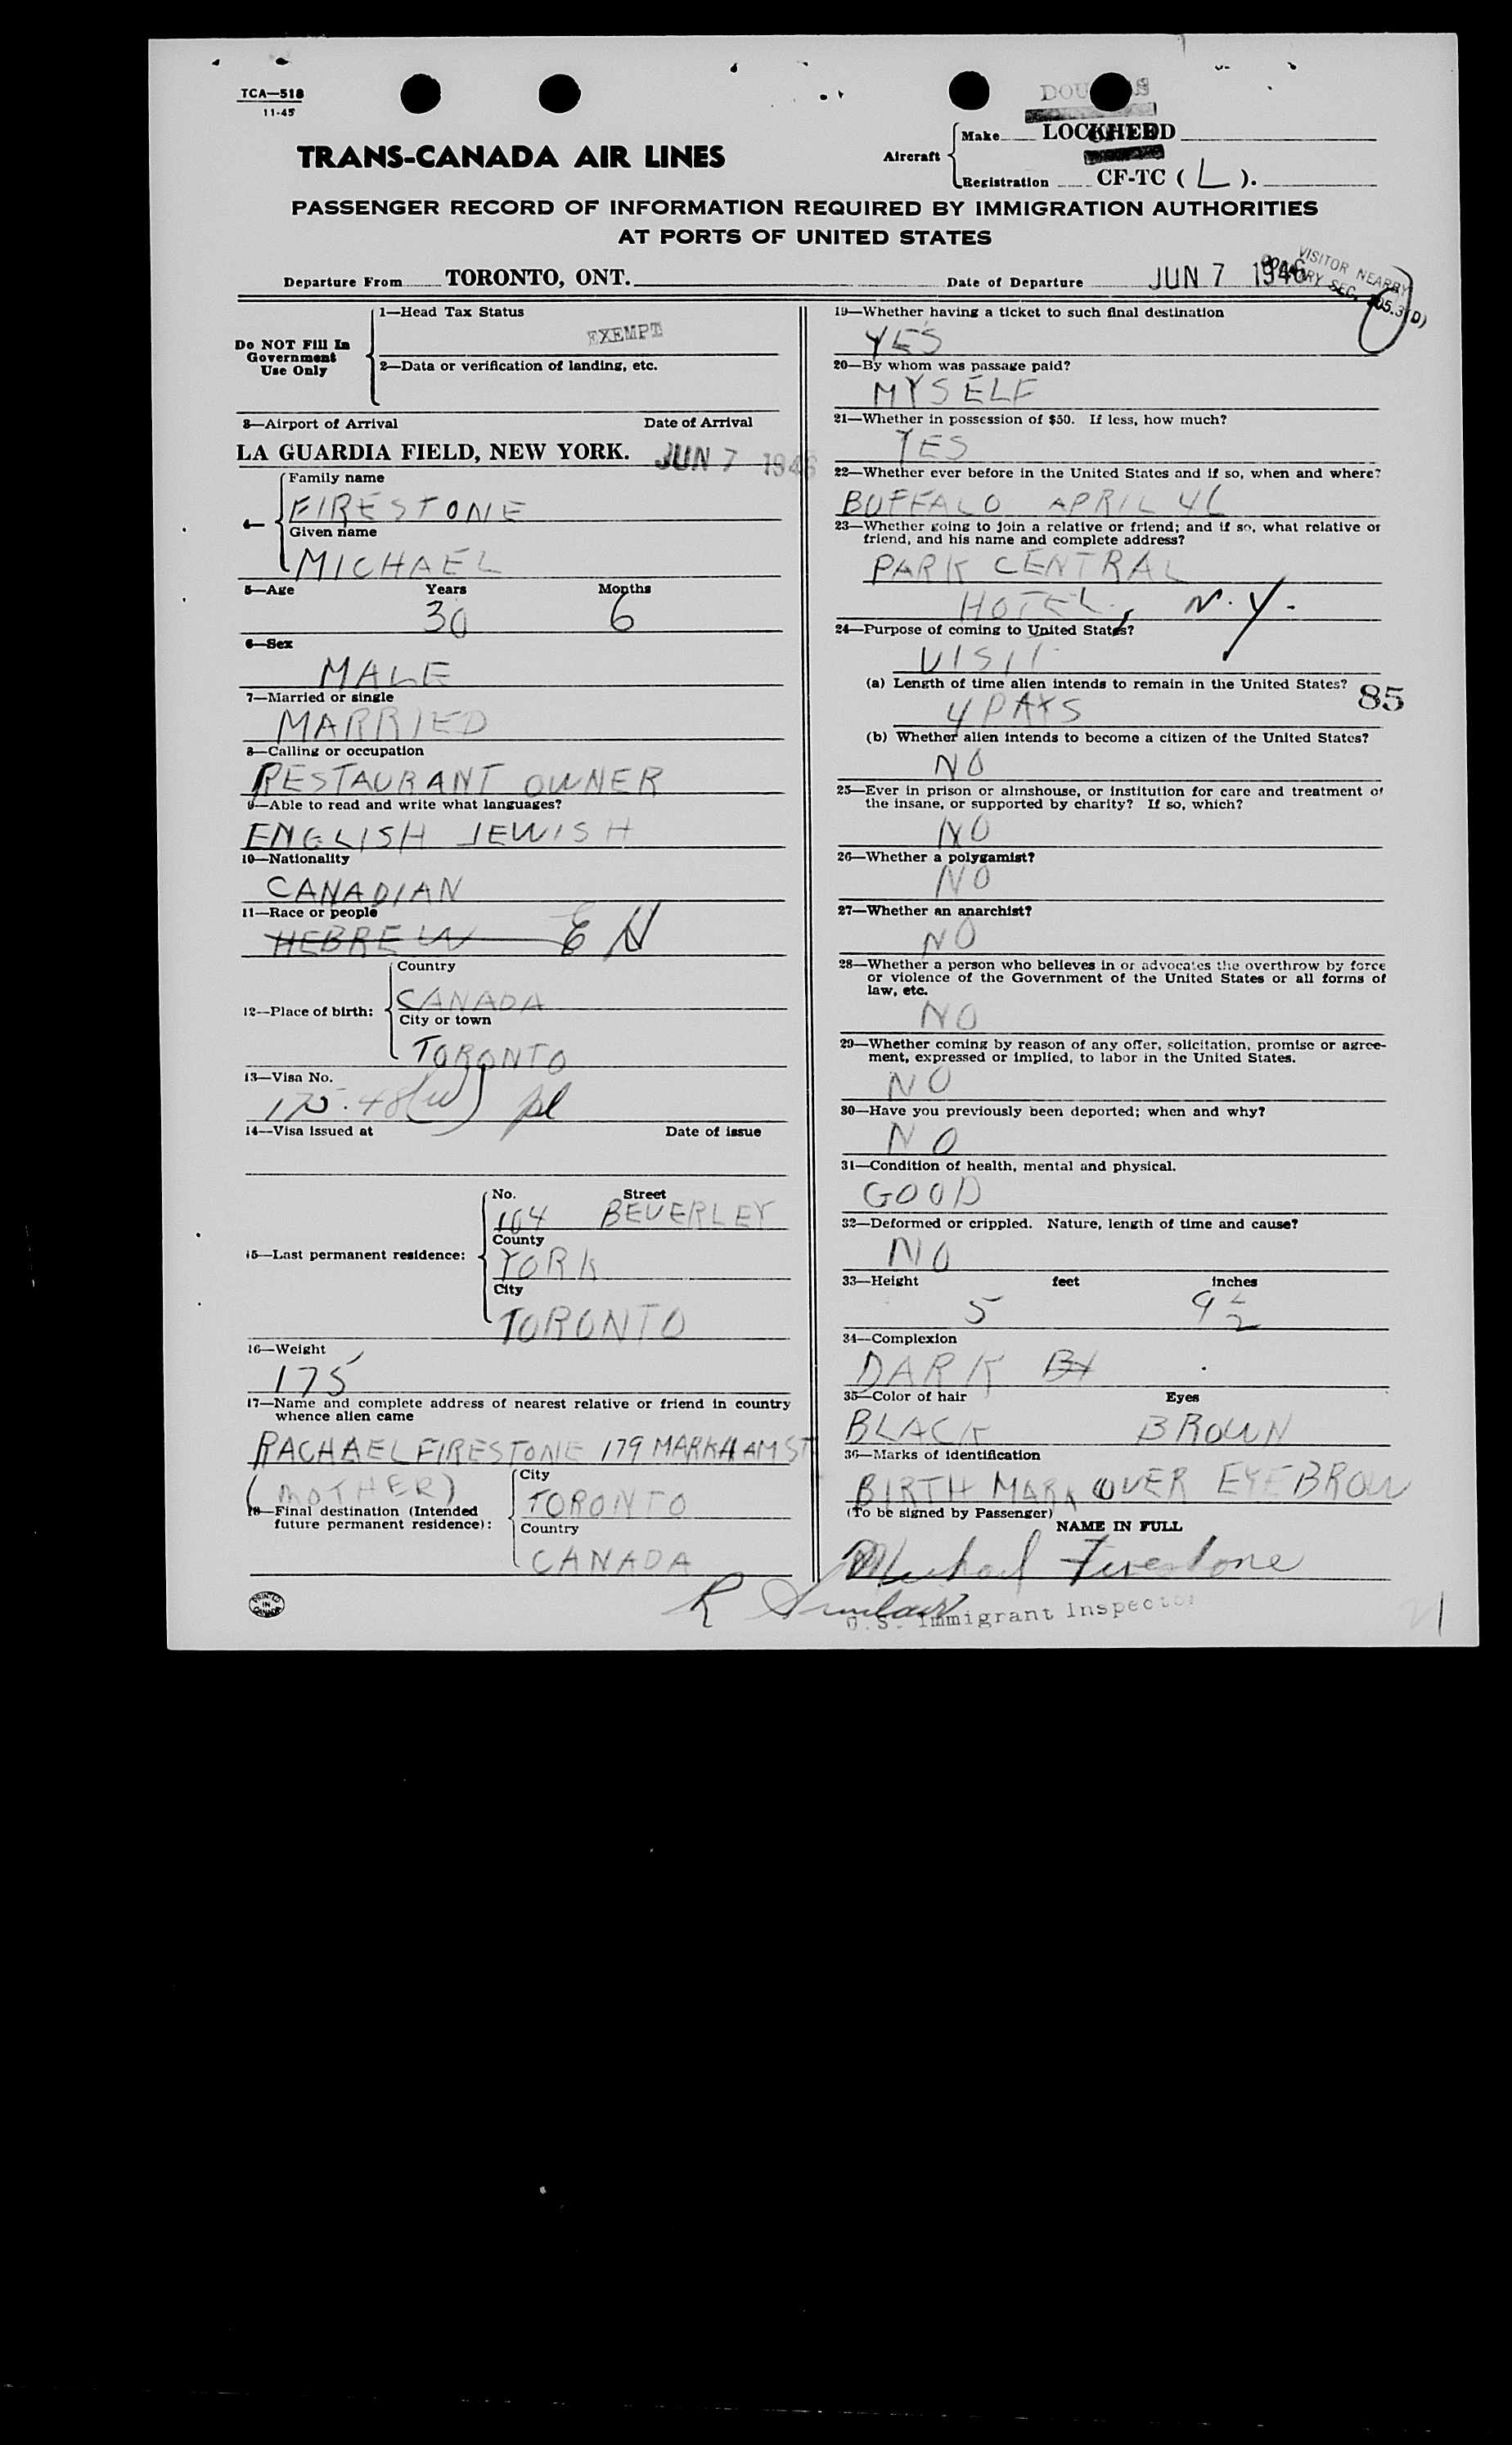 TCA—518
11-45
TRANS-CANADA AIR LINES
Aircraft
Make LOCKHEED
Registration CF-TC ( L ).
PASSENGER RECORD OF INFORMATION REQUIRED BY IMMIGRATION AUTHORITIES
AT PORTS OF UNITED STATES
Departure From TORONTO, ONT.
Date of Departure JUN 7 1946
VISITOR NEARBY
Do NOT Fill In
Government
Use Only
1—Head Tax Status
EXEMPT
2—Data or verification of landing, etc.
3—Airport of Arrival Date of Arrival
LA GUARDIA FIELD, NEW YORK. JUN 7 1946
4—
Family name
FIRESTONE
Given name
MICHAEL
5—Age Years Months
30 6
6—Sex
MALE
7—Married or single
MARRIED
8—Calling or occupation
RESTAURANT OWNER
9—Able to read and write what languages?
ENGLISH JEWISH
10—Nationality
CANADIAN
11—Race or people
HEBREW
12—Place of birth:
Country
CANADA
City or town
TORONTO
13—Visa No.
14—Visa issued at Date of issue
15—Last permanent residence:
No. Street
104 BEVERLEY
County
YORK
City
TORONTO
16—Weight
175
17—Name and complete address of nearest relative or friend in country
whence alien came
RACHAEL FIRESTONE 179 MARKHAM ST
(MOTHER)
18—Final destination (Intended
future permanent residence):
City
TORONTO
Country
CANADA
PRINTED
IN
CANADA
19—Whether having a ticket to such final destination
YES
20—By whom was passage paid?
MYSELF
21—Whether in possession of $50. If less, how much?
YES
22—Whether ever before in the United States and if so, when and where?
BUFFALO APRIL 46
23—Whether going to join a relative or friend; and if so, what relative or
friend, and his name and complete address?
PARK CENTRAL
HOTEL, N.Y.
24—Purpose of coming to United States?
VISIT
(a) Length of time alien intends to remain in the United States?
85
4 DAYS
(b) Whether alien intends to become a citizen of the United States?
NO
25—Ever in prison or almshouse, or institution for care and treatment of
the insane, or supported by charity? If so, which?
NO
26—Whether a polygamist?
NO
27—Whether an anarchist?
NO
28—Whether a person who believes in or advocates the overthrow by force
or violence of the Government of the United States or all forms of
law, etc.
NO
29—Whether coming by reason of any offer, solicitation, promise or agree-
ment, expressed or implied, to labor in the United States.
NO
30—Have you previously been deported; when and why?
NO
31—Condition of health, mental and physical.
GOOD
32—Deformed or crippled. Nature, length of time and cause?
NO
33—Height feet inches
5 9 1/2
34—Complexion
DARK
35—Color of hair Eyes
BLACK BROWN
36—Marks of identification
BIRTH MARK OVER EYEBROW
(To be signed by Passenger)
NAME IN FULL
Michael Firestone
U.S. Immigrant Inspector